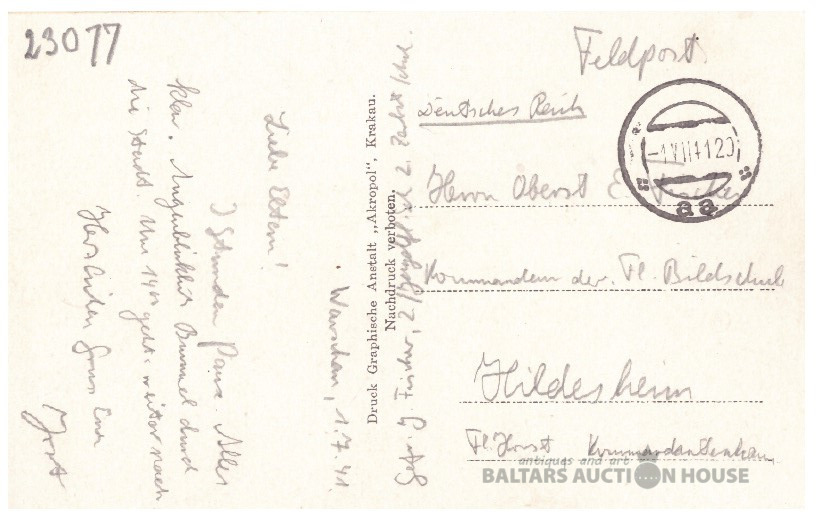 23077
Feldpost
Deutsches Reich
Herrn Oberst E. Fischer
Kommandeur der Fl. Bildschule
Hildesheim
Fl. Horst Kommandantenhaus
-1.VII.41.20
aa
Druck Graphische Anstalt „Akropol“, Krakau.
Nachdruck verboten.
Fischer, 2/
Warschau, 1.7.41.
Liebe Eltern!
3 Stunden Pause. Alles
klar. Augenblicklich Bummel durch
die Stadt. Um 14 geht's weiter nach
Herzlichen Gruss Euer
Jost
antiques and art
BALTARS AUCTION HOUSE